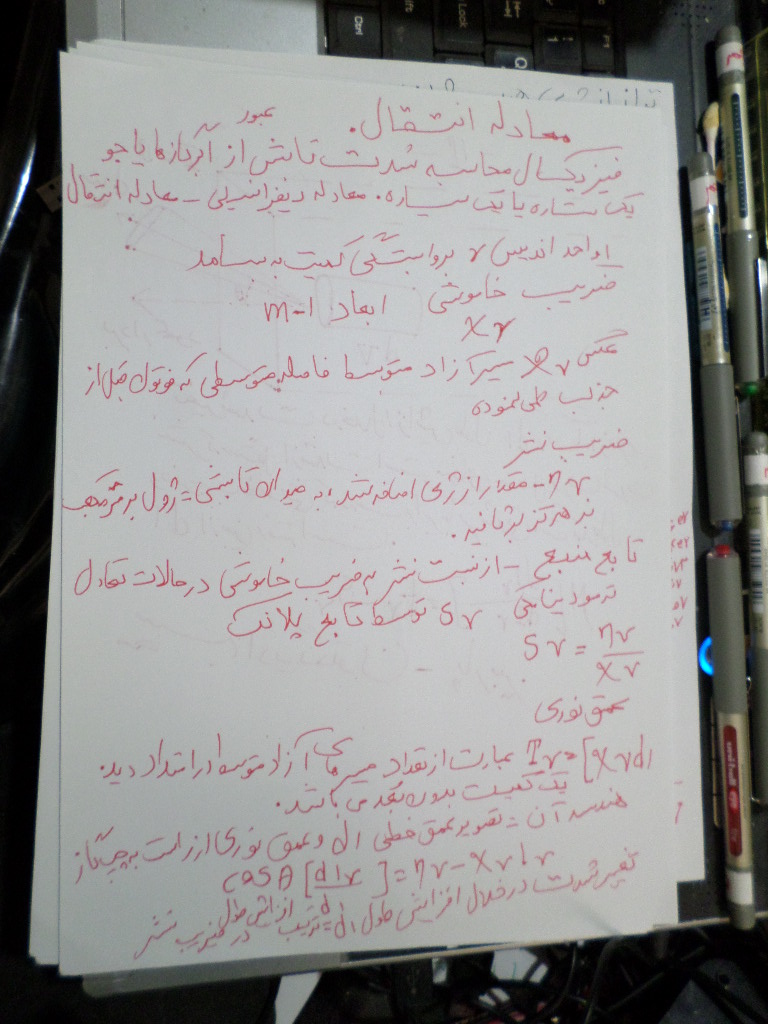 معادله انتقال.
عبور
فیزیکال محاسبه شدت تابش از گازها یا جو
یک ستاره یا یک سیاره. معادله دیفرانسیلی - معادله انتقال
اندیس ν بر وابستگی کمیت به بسامد
ضریب خاموشی ابعاد m-1
χν
عکس χν مسیر آزاد متوسط فاصله متوسطی که فوتون قبل از
جذب طی نموده
ضریب نشر
ην - مقدار انرژی اضافه شده به میدان تابشی = ژول بر متر مکعب
در هرتز بر ثانیه.
تابع منبع - از نسبت نشر به ضریب خاموشی در حالات تعادل
ترمودینامیکی Sν توسط تابع پلانک
Sν = ην/χν
عمق نوری
Tν=[χνdl عبارت از تعداد مسیرهای آزاد متوسط در امتداد دید.
یک کمیت بدون بعد می باشد.
هندسه آن - تصویر عمق خطی dl و عمق نوری از راست به چپ گاز
cosθ [dIν/dl] = ην - χνIν
تغییر شدت در خلال افزایش طول dl = ترتیب افزایش طول در ضریب نشر
Ctrl
Lock